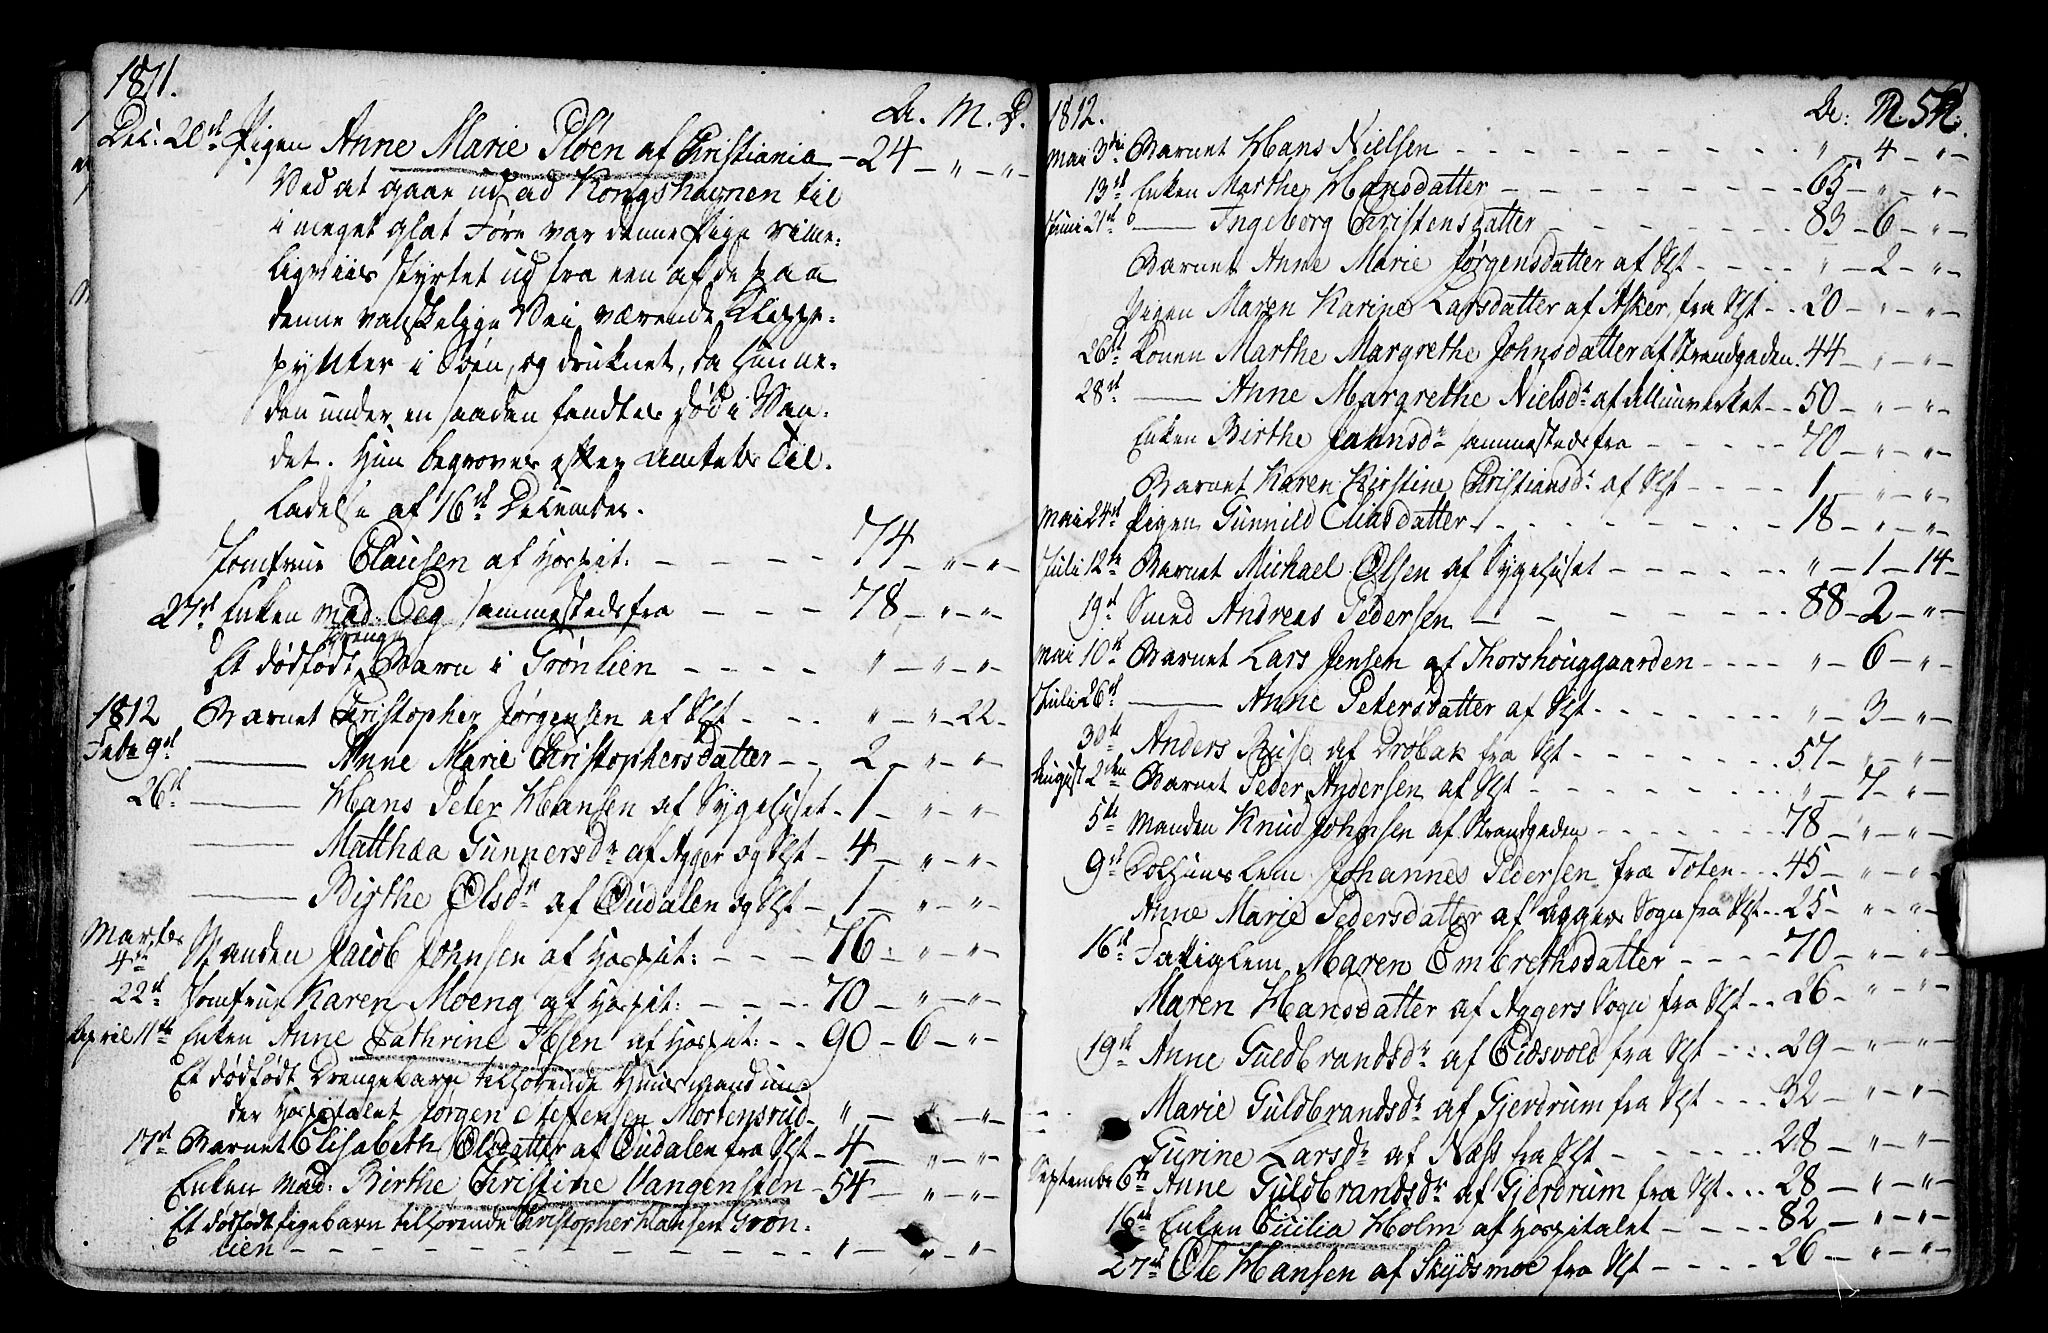 1811.
A. M. D.
Dec: 20de Pigen Anne Marie Pløen af Christiania – 24 – " – " –
Ved at gaae ud ad Kongshavnen til
i meget glat Føre var denne Pige rime-
ligviis styrtet ud fra een af de paa
denne vanskelige Vei værende Klippe-
pynter i Søen, og druknet, da Hun ne-
den under en saadan fandtes død i Van-
det. Hun begroves efter Amtets Til-
ladelse af 16de December.
Jomfrue Clausen af Hospit: – – – – 74 – " – " –
27de Enken Mad. Eeg sammestedsfra – – – 78 – " – " –
Et dødfødt Drenge Barn i Grønlien – – – – " – " – " –
1812 Barnet Christopher Jørgensen af Slst – – – " – " – 22 –
Febr 9de —— Anne Marie Christophersdatter – – 2 – " – " –
26de —— Hans Peter Hansen af Sygehuset – 1 – " – " –
—— Matthæa Gunnersdr af Agger og Slst – 4 – " – " –
—— Birthe Olsdr af Oudalen og Slst – 1 – " – " –
Martz
4de Manden Jacob Johnsen af Hospit: – – – 76 – " – " –
22de Jomfrue Karen Moeng af Hospit: – – – 70 – " – " –
April 11te Enken Anne Cathrine Ibsen af Hospit: – – 90 – 6 – " –
Et dødfødt Drengebarn tilhørende Huusmand un-
der Hospitalet Jørgen Steffensen Mortensrud – " – " – " –
17de Barnet Elisabeth Olsdatter af Oudalen fra Slst – 4 – " – " –
Enken Mad: Birthe Christine Vangensten – 54 – " – " –
Et dødfødt Pigebarn tilhørende Christopher Hansen Grøn-
lien – – – – – – – – – – " – " – " –
1812.
A: M.
Mai 3die Barnet Hans Nielsen – – – – – " – 4 – " –
13de Enken Marthe Hansdatter – – – – – 65 – " – " –
Juni 21de —— Ingeborg Christensdatter – – – – 83 – 6 – " –
Barnet Anne Marie Jørgensdatter af Slst – – – – " – 2 – " –
Pigen Maren Karine Larsdatter af Asker, fra Slst – – 20 – " – " –
26de Konen Marthe Margrethe Johnsdatter af Strandgaden. 44 – " – " –
28de —— Anne Margrethe Nielsdr af Allunverket – – 50 – " – " –
Enken Birthe Johnsdr sammestedsfra – – – – – 70 – " – " –
Barnet Karen Kirstine Christiansdr af Slst – – – – 1 – " – " –
Mai 24de Pigen Gunnild Eliasdatter – – – – – 18 – " – " –
Juli 12te Barnet Michael Olsen af Sygehuset – – – – " – 1 – 14 –
19de Smed Andreas Pedersen – – – – – 88 – 2 – " –
Mai 10de Barnet Lars Jensen af Thorshouggaarden – – – – " – 6 – " –
Juli 26de —— Anne Petersdatter af Slst – – – – – " – 3 – " –
30te Anders Buise af Drøbak fra Slst – – – – – 57 – " – " –
August 2den Barnet Peder Andersen af Slst – – – – – " – 7 – " –
5te Manden Knud Johnsen af Strandgaden – – – – 78 – " – " –
9de Tolhuuslem Johannes Pedersen fra Toten – – – 45 – " – " –
Anne Marie Pedersdatter af Aggers Sogn fra Slst – – 25 – " – " –
16de Fattiglem Maren Embrethsdatter – – – – 70 – " – " –
Maren Hansdatter af Aggers Sogn fra Slst – – 26 – " – " –
19de Anne Guldbrandsdr af Eidsvold fra Slst – – – 29 – " – " –
Marie Guldbrandsdr af Gjerdrum fra Slst – – – 32 – " – " –
Gurine Larsdr af Næss fra Slst – – – – – 28 – " – " –
September 6te Anne Guldbrandsdr af Gjerdrum fra Slst – – – 28 – " – " –
16de Enken Cicilia Holm af Hospitalet – – – – 82 – " – " –
27de Ole Hansen af Skydsmoe fra Slst – – – – 26 – " – " –